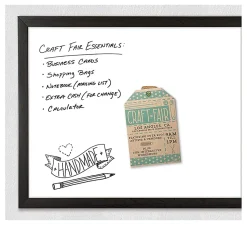 CRAFT FAIR ESSENTIALS:
· BUSINESS CARDS
· SHOPPING BAGS
· NOTEBOOK (MAILING LIST)
· EXTRA CASH (FOR CHANGE)
· CALCULATOR
HANDMADE
CRAFT FAIR
LOS ANGELES CO.
9AM